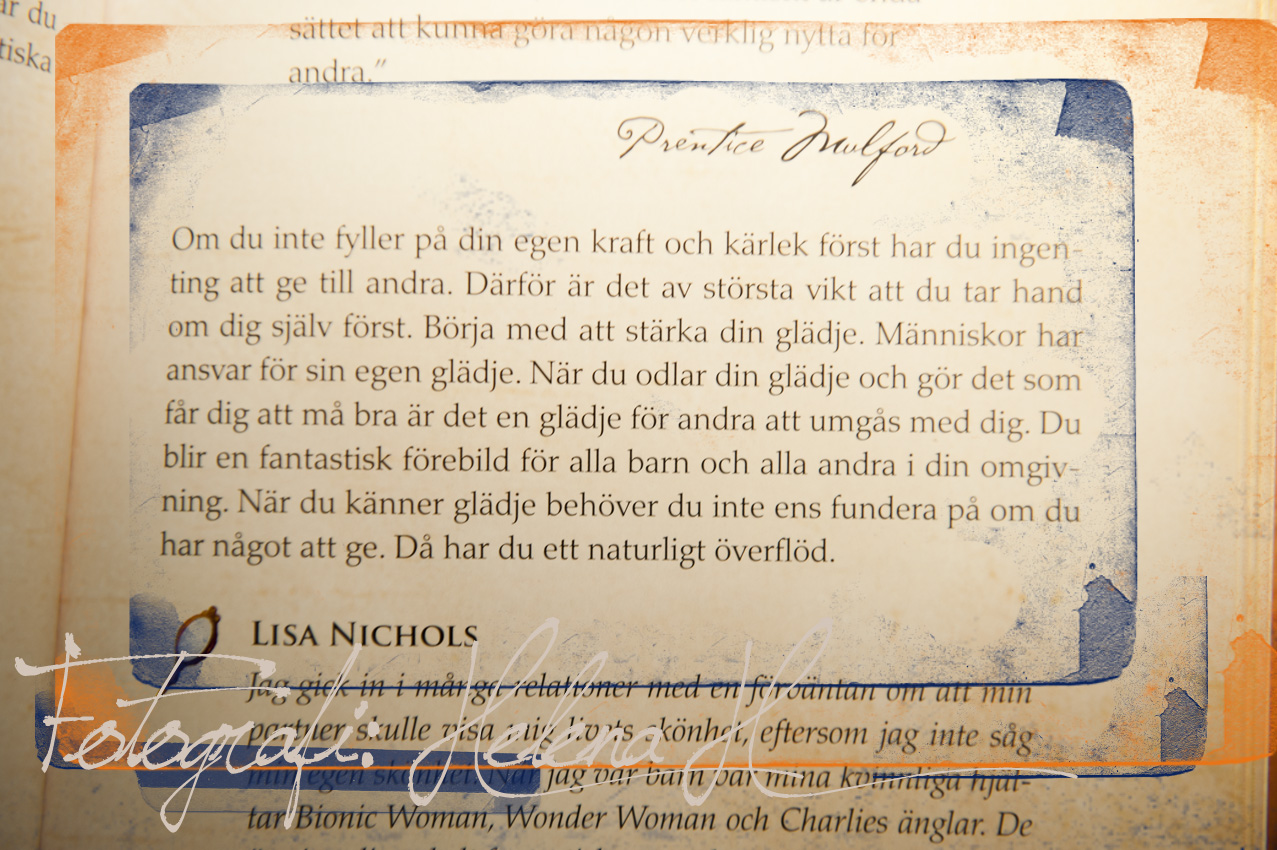 ar du
tiska
sättet att kunna göra någon verklig nytta för
andra.”
Prentice Mulford
Om du inte fyller på din egen kraft och kärlek först har du ingen-
ting att ge till andra. Därför är det av största vikt att du tar hand
om dig själv först. Börja med att stärka din glädje. Människor har
ansvar för sin egen glädje. När du odlar din glädje och gör det som
får dig att må bra är det en glädje för andra att umgås med dig. Du
blir en fantastisk förebild för alla barn och alla andra i din omgiv-
ning. När du känner glädje behöver du inte ens fundera på om du
har något att ge. Då har du ett naturligt överflöd.
LISA NICHOLS
Jag gick in i många relationer med en förväntan om att min
partner skulle visa mig livets skönhet, eftersom jag inte såg
min egen skönhet. När jag var barn var mina kvinnliga hjäl-
tar Bionic Woman, Wonder Woman och Charlies änglar. De
Fotografi: Helena H